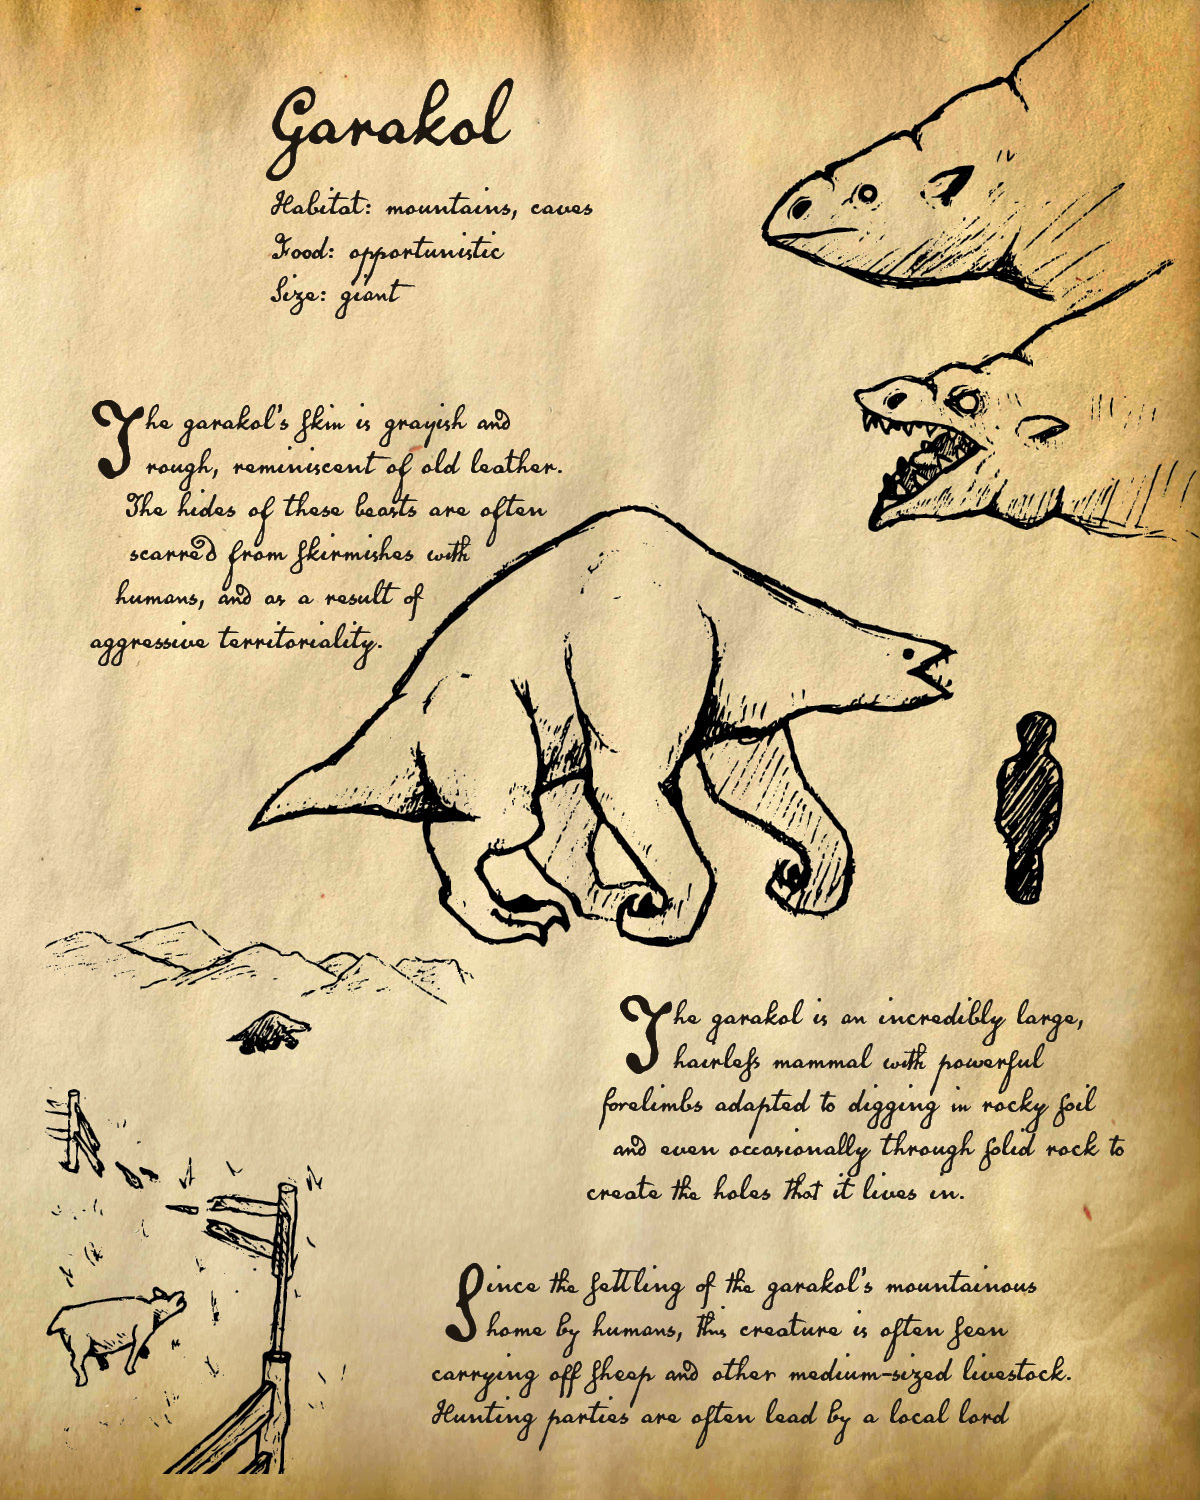 Garakol
Habitat: mountains, caves
Food: opportunistic
Size: giant
The garakol's skin is grayish and
rough, reminiscent of old leather.
The hides of these beasts are often
scarred from skirmishes with
humans, and as a result of
aggressive territoriality.
The garakol is an incredibly large,
hairless mammal with powerful
forelimbs adapted to digging in rocky soil
and even occasionally through solid rock to
create the holes that it lives in.
Since the settling of the garakol's mountainous
home by humans, this creature is often seen
carrying off sheep and other medium-sized livestock.
Hunting parties are often lead by a local lord